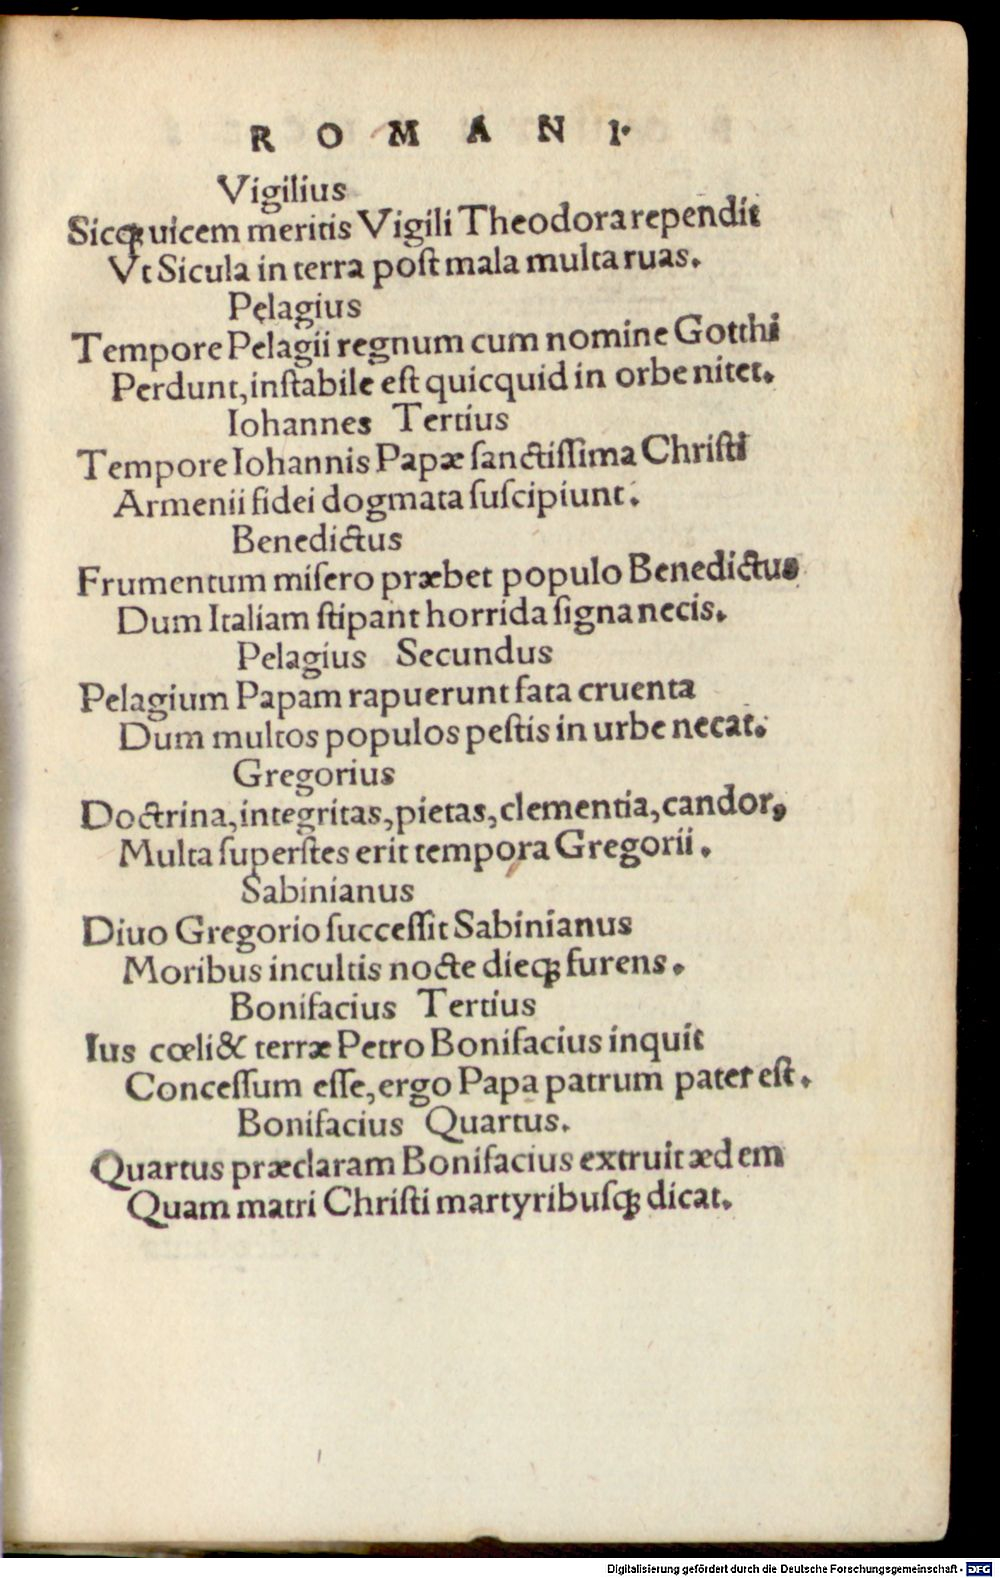 R O M A N I.
Vigilius
Sicqꝫ uicem meritis Vigili Theodora rependit
Vt Sicula in terra post mala multa ruas.
Pęlagius
Tempore Pelagii regnum cum nomine Gotthi
Perdunt, instabile est quicquid in orbe nitet.
Iohannes Tertius
Tempore Iohannis Papæ sanctissima Christi
Armenii fidei dogmata suscipiunt.
Benedictus
Frumentum misero præbet populo Benedictus
Dum Italiam stipant horrida signa necis.
Pelagius Secundus
Pelagium Papam rapuerunt fata cruenta
Dum multos populos pestis in urbe necat.
Gregorius
Doctrina, integritas, pietas, clementia, candor,
Multa superstes erit tempora Gregorii.
Sabinianus
Diuo Gregorio successit Sabinianus
Moribus incultis nocte dieqꝫ furens.
Bonifacius Tertius
Ius cœli & terræ Petro Bonifacius inquit
Concessum esse, ergo Papa patrum pater est.
Bonifacius Quartus.
Quartus præclaram Bonifacius extruit ædem
Quam matri Christi martyribusqꝫ dicat.
Digitalisierung gefördert durch die Deutsche Forschungsgemeinschaft - DFG